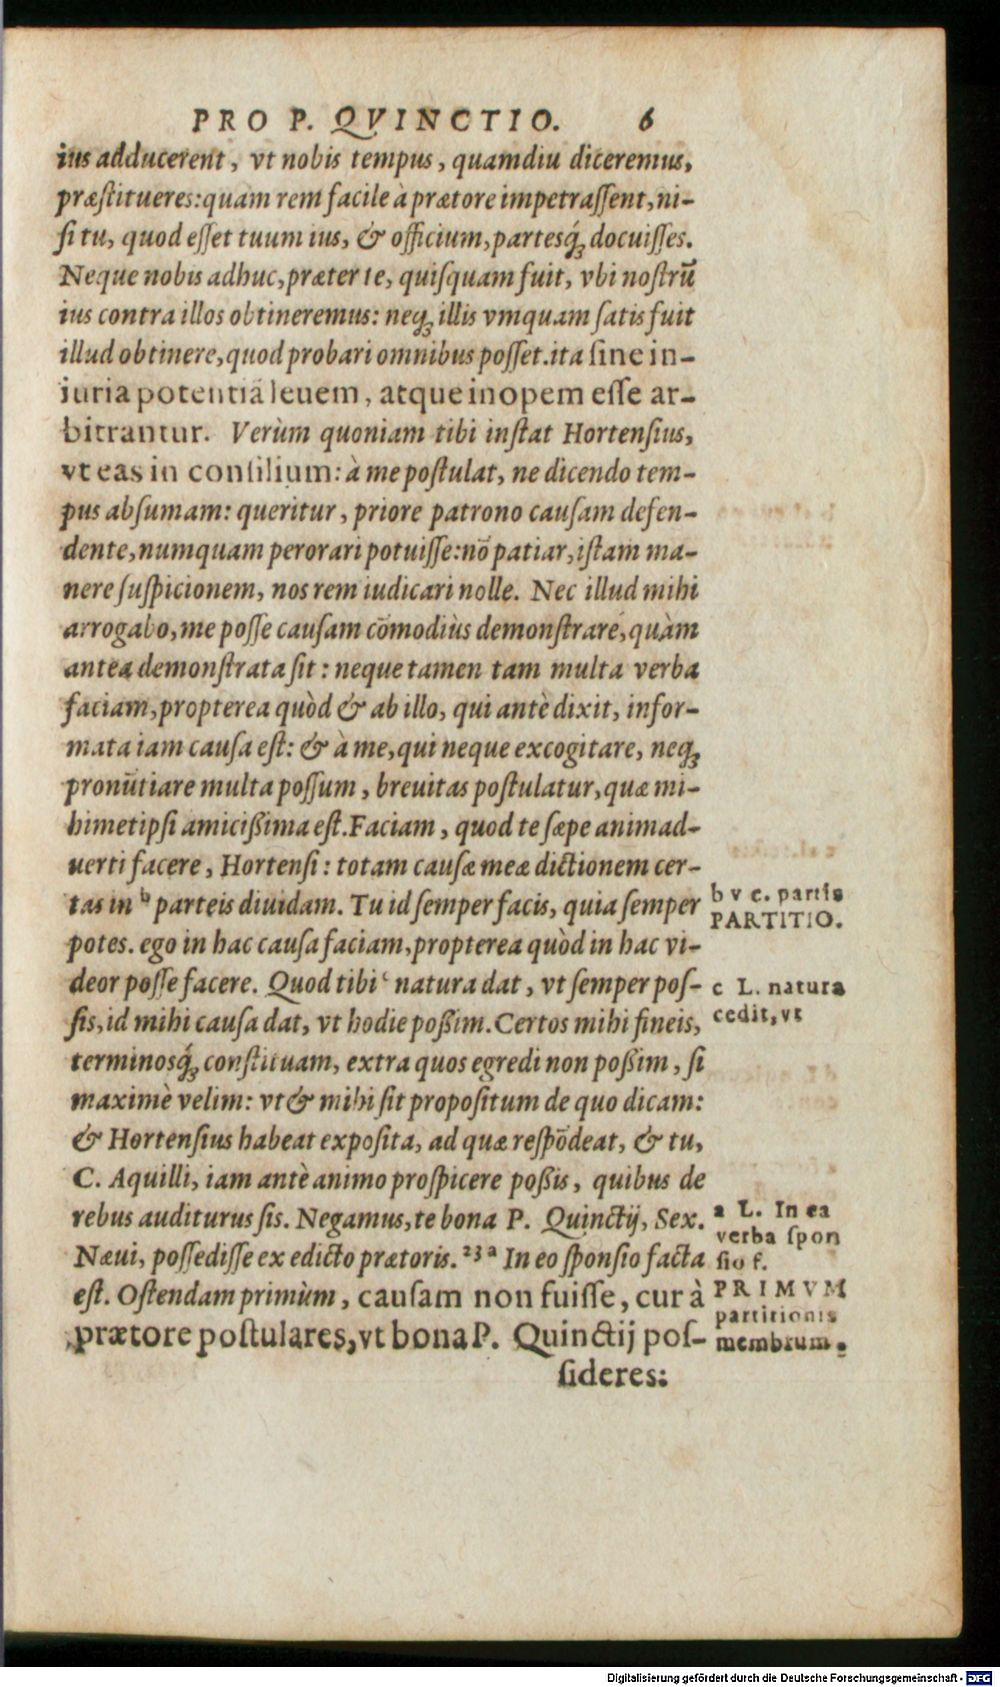 PRO P. QVINCTIO. 6
ius adducerent, vt nobis tempus, quamdiu diceremus,
præſtitueres: quam rem facile à prætore impetraſſent, ni-
ſi tu, quod eſſet tuum ius, & officium, partesq́ꝫ docuiſſes.
Neque nobis adhuc, præter te, quiſquam fuit, vbi noſtrũ
ius contra illos obtineremus: neqꝫ illis vmquam ſatis fuit
illud obtinere, quod probari omnibus poſſet. ita ſine in-
iuria potentiã leuem, atque inopem eſſe ar-
bitrantur. Verùm quoniam tibi inſtat Hortenſius,
vt eas in conſilium: à me poſtulat, ne dicendo tem-
pus abſumam: queritur, priore patrono cauſam defen-
dente, numquam perorari potuiſſe: nõ patiar, iſtam ma-
nere ſuſpicionem, nos rem iudicari nolle. Nec illud mihi
arrogabo, me poſſe cauſam cõmodiùs demonſtrare, quàm
antea demonſtrata ſit: neque tamen tam multa verba
faciam, propterea quòd & ab illo, qui antè dixit, infor-
mata iam cauſa eſt: & à me, qui neque excogitare, neqꝫ
pronũtiare multa poſſum, breuitas poſtulatur, quæ mi-
himetipſi amicißima eſt. Faciam, quod te ſæpe animad-
uerti facere, Hortenſi: totam cauſæ meæ dictionem cer-
tas in ᵇ parteis diuidam. Tu id ſemper facis, quia ſemper
potes. ego in hac cauſa faciam, propterea quòd in hac vi-
deor poſſe facere. Quod tibi ᶜ natura dat, vt ſemper poſ-
ſis, id mihi cauſa dat, vt hodie poßim. Certos mihi fineis,
terminosq́ꝫ conſtituam, extra quos egredi non poßim, ſi
maximè velim: vt & mihi ſit propoſitum de quo dicam:
& Hortenſius habeat expoſita, ad quæ reſpõdeat, & tu,
C. Aquilli, iam antè animo proſpicere poßis, quibus de
rebus auditurus ſis. Negamus, te bona P. Quinctij, Sex.
Næui, poſſediſſe ex edicto prætoris. ²³ ᵃ In eo ſponſio facta
eſt. Oſtendam primùm, cauſam non fuiſſe, cur à
prætore poſtulares, vt bona P. Quinctij poſ-
ſideres:
b v c. partis
PARTITIO.
c L. natura
cedit, vt
a L. In ea
verba ſpon
ſio f.
PRIMVM
partitionis
membrum.
Digitalisierung gefördert durch die Deutsche Forschungsgemeinschaft - DFG